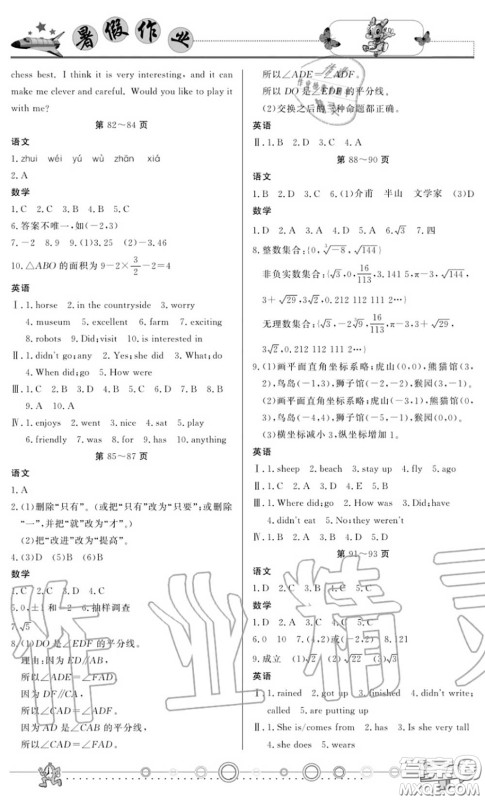 暑假作业
chess best. I think it is very interesting, and it can
make me clever and careful. Would you like to play it
with me?
第 82～84 页
语文
1. zhuì wéi yú wù zhān xiá
2. A
数学
1. C 2. C 3. B 4. B 5. C
6. 答案不唯一,如(-2,4)
7. -2 8. 9 9. (1)3,25 (2)-3,46
10. △ABO 的面积为 9-2×3/2-2=4
英语
Ⅰ. 1. horse 2. in the countryside 3. worry
4. museum 5. excellent 6. farm 7. exciting
8. robots 9. Did; visit 10. is interested in
Ⅱ. 1. didn't go; any 2. Yes; she did 3. What; do
4. When did; go 5. How were
Ⅲ. 1. C 2. C 3. D 4. B 5. C 6. B 7. B 8. D
9. A 10. A
Ⅳ. 1. enjoys 2. went 3. nice 4. sat 5. play
6. friendly 7. was 8. for 9. has 10. anything
第 85～87 页
语文
1. A
2. (1)删除“只有”。(或把“只有”改为“只要”;或删除
“一”,并把“就”改为“才”。)
(2)把“改进”改为“提高”。
4. (3)D (5)B (6)B
数学
1. C 2. C 3. D 4. C
5. 0,±1 和-2 6. 抽样调查
7. √5
8. (1)DO 是∠EDF 的平分线。
理由:因为 ED∥AB,
所以∠ADE=∠FAD。
因为 DF∥CA,
所以∠CAD=∠ADF。
因为 AD 是∠CAB 的平分线,
所以∠CAD=∠FAD。
所以∠ADE=∠ADF。
所以 DO 是∠EDF 的平分线。
(2)交换之后的三种命题都正确。
英语
Ⅱ. 1. B 2. D 3. A 4. C 5. B
第 88～90 页
语文
1. B 2. D 5. B 6. (1)介甫 半山 文学家 (3)D
数学
1. D 2. C 3. B 4. D 5. A 6. √3 7. 四
8. 整数集合:{0,∛-8,√144}
非负实数集合:{√3,0,16/113,3.141 5,π-3,√144,
3+√29,3√2,0.212 112 111 2…}
无理数集合:{√3,-2∛9,16/113,π-3,√144,3+√29,
3√2,0.212 112 111 2…}
9. (1)画平面直角坐标系略;虎山(0,0),熊猫馆(3,
2),鸟岛(-1,3),狮子馆(-2,-2),猴园(3,-1)。
(2)画平面直角坐标系略;虎山(-3,1),熊猫馆(0,
3),鸟岛(-4,4),狮子馆(-5,-1),猴园(0,0)。
(3)横坐标减小 3,纵坐标增加 1。
英语
Ⅰ. 1. sheep 2. beach 3. stay up 4. fly 5. ago
Ⅱ. 1. D 2. A 3. E 4. C 5. B
Ⅲ. 1. Where did; go 2. How was 3. Did; have
4. didn't eat 5. No; they weren't
第 91～93 页
语文
1. D 2. C 3. C 4. A 5. D
数学
1. D 2. C 3. C 4. C 5. A
6. 0 10 7. (4,2)或(-2,2) 8. 121
9. 成立 (1)√2 (2)√22 (3)√3
英语
Ⅰ. 1. rained 2. got up 3. finished 4. didn't write;
called 5. are putting up
Ⅱ. 1. She is/comes from 2. has 3. Is she very tall
4. she does 5. wears
作业精灵
答案圈
MXQE.COM